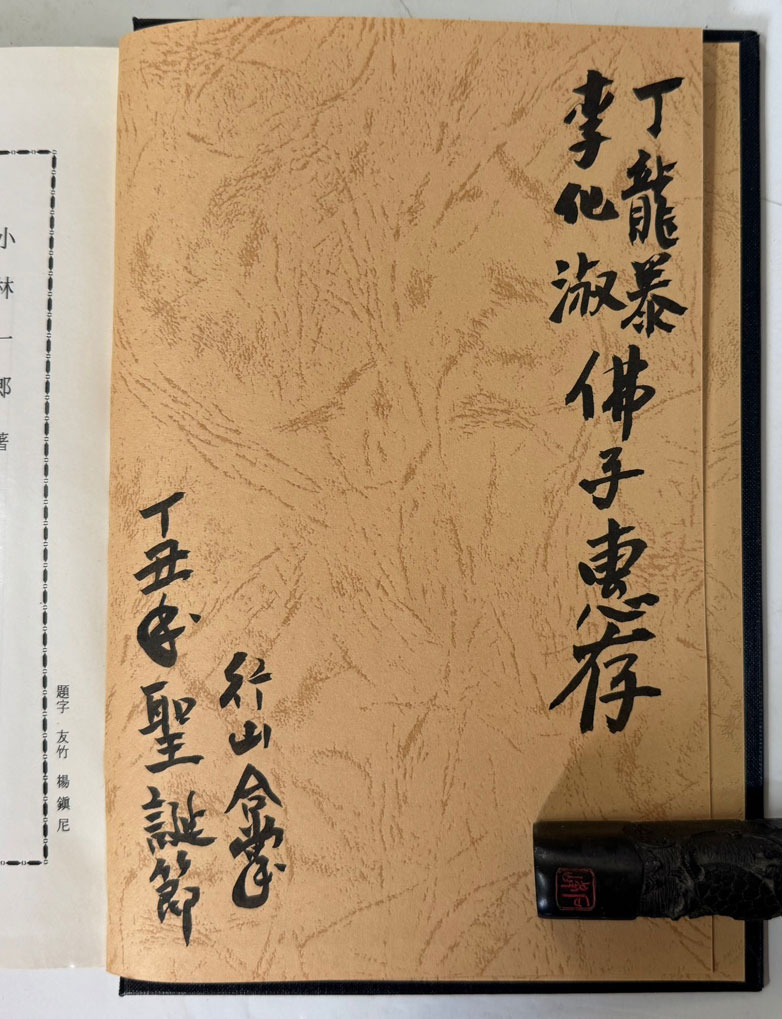 丁龍暴
李化淑
佛子惠存
行山合掌
丁丑年聖誕節
題字 友竹 楊鎭尼
小林一郎著